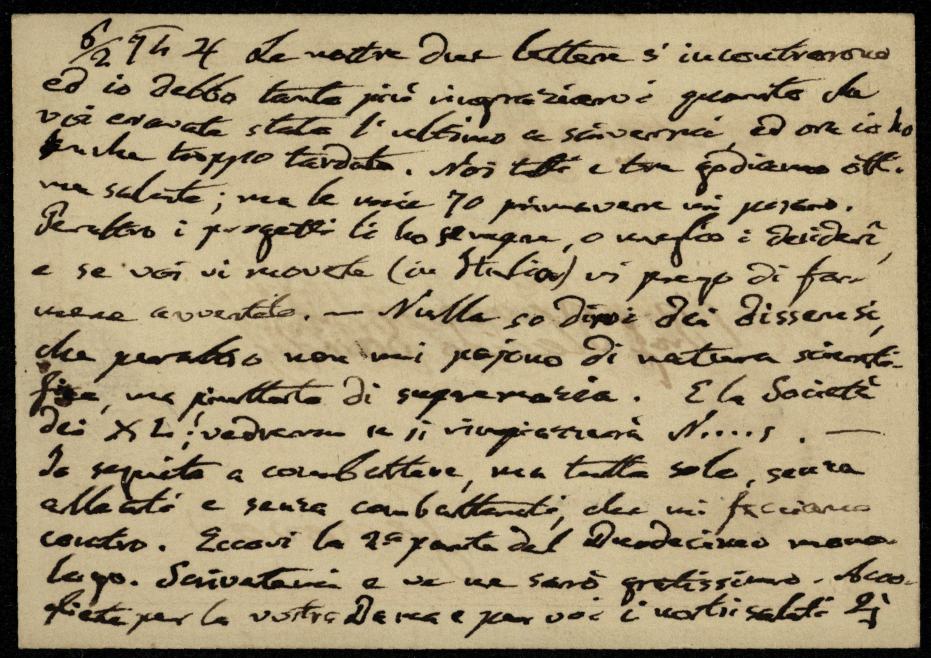 6/2 Le nostre due lettere s'incontrarono
ed io debbo tanto più ringraziarvi quanto che
voi eravate stato l'ultimo a scrivermi, ed ora io ho
anche troppo tardato. Noi tutti e tre godiamo otti-
ma salute; ma le mie 70 primavere mi pesano.
Peraltro i progetti li ho sempre, o meglio i desideri,
e se voi vi movete (in Italia) vi prego di far-
mene avvertito. — Nulla so dirvi dei dissensi,
che peraltro non mi pajono di natura scienti-
fica, ma piuttosto di supremazia. E la Società
dei XL! vedremo se si ringrazierà N....s. —
Io seguito a combattere, ma tutto solo, senza
alleati e senza combattenti, che mi facciano
contro. Eccovi la 2a parte del Duodecimo mono-
logo. Scrivetemi e ve ne sarò gratissimo. Acco-
gliete per la vostra Dama e per voi i nostri saluti